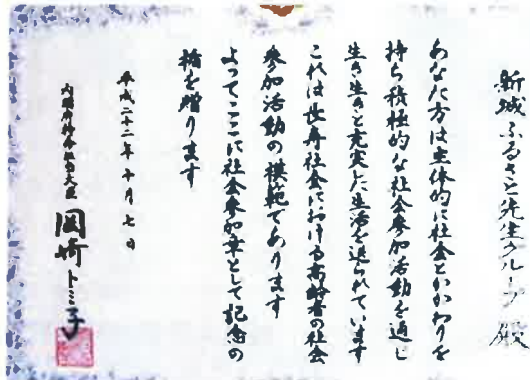 新城ふるさと先生グループ殿
あなた方は主体的に社会とかかわりを
持ち積極的な社会参加活動を通し
生き生きと充実した生活を送られています
これは長寿社会における高齢者の社会
参加活動の模範であります
よってここに社会参加章として記念の
楯を贈ります
平成二十二年十月七日
内閣府特命担当大臣 岡崎トミ子